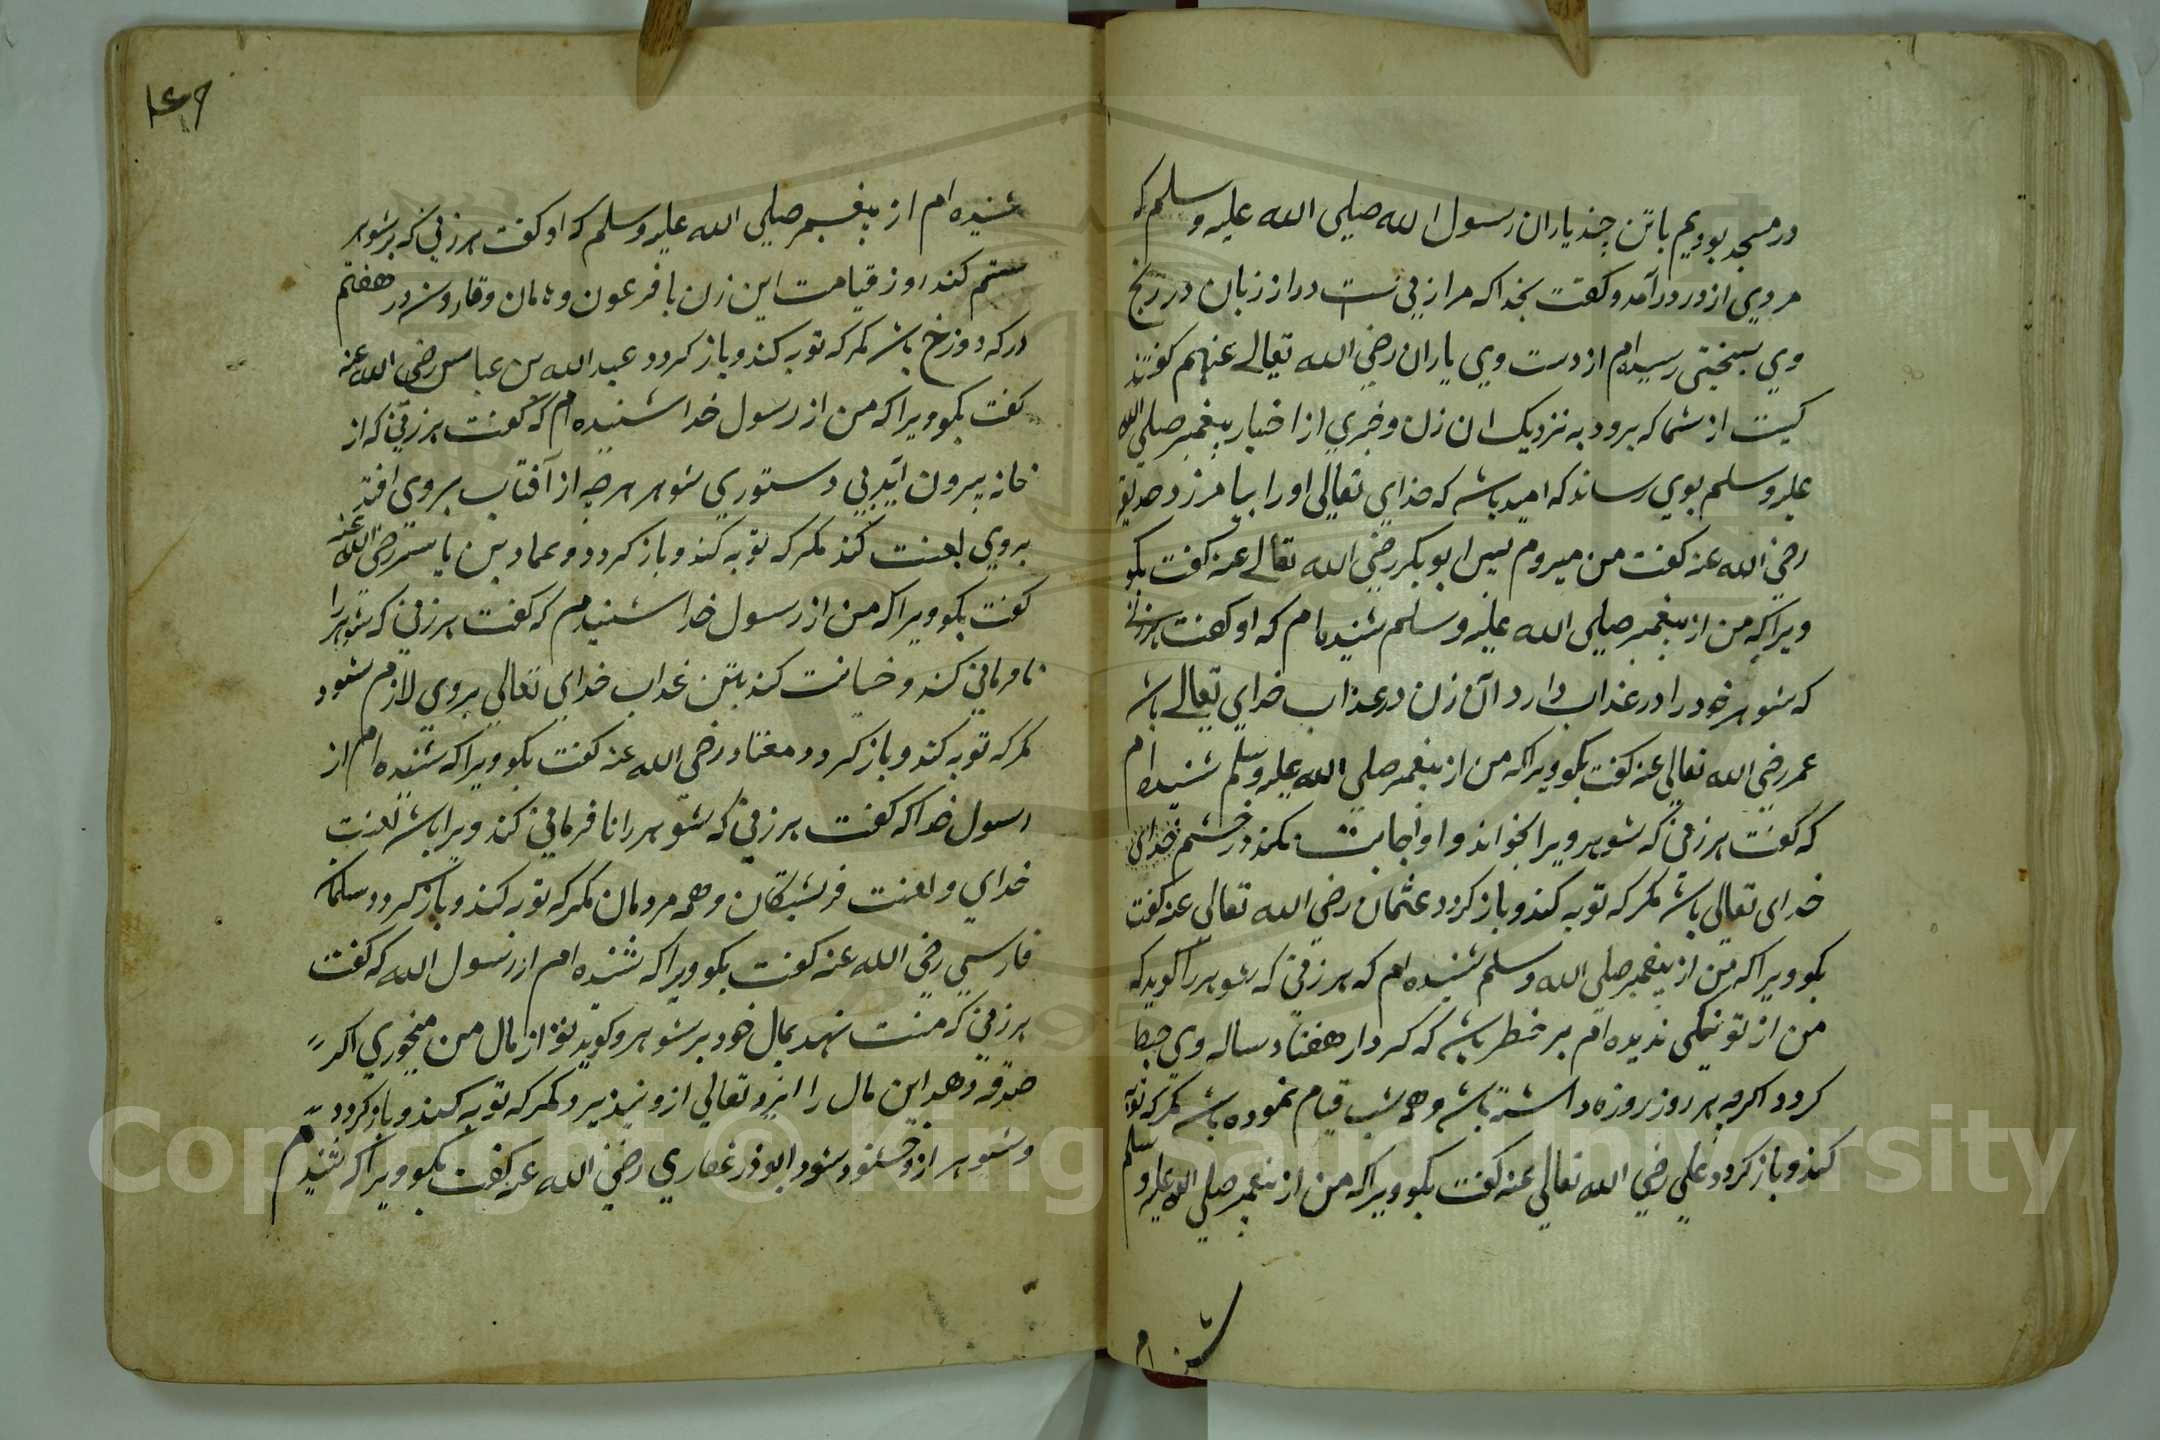 در مسجد بوديم با تن چند ياران رسول الله صلي الله عليه وسلم كه
مردي از در درآمد و كفت بخدا كه مرا زني است دراز زبان در رنج
وي بسختي رسيدام از دست وي ياران رضي الله تعالے عنهم كفتند
كيست از شما كه برود به نزديك ان زن و خبري از اخبار پيغمبر صلي الله
عليه وسلم بوي رساند كه اميد باشد كه خداي تعالى او را بيامرزد صديق
رضي الله عنه كفت من ميروم پس ابو بكر رضي الله تعالے عنه كفت بكو
ويرا كه من از پيغمبر صلي الله عليه وسلم شنيده ام كه او كفت هرزني
كه شوهر خود را در عذاب دارد آن زن در عذاب خداي تعالے باشد
عمر رضي الله تعالي عنه كفت بكو ويرا كه من از پيغمبر صلي الله عليه وسلم شنيده ام
كه كفت هر زني كه شوهر ويرا بخواند و او اجابت نكند در خشم خداي
خداي تعالي باشد مكر كه توبه كند و باز كردد عثمان رضي الله تعالي عنه كفت
بكو ويرا كه من از پيغمبر صلي الله وسلم شنيده ام كه هر زني كه شوهر را كويد كه
من از تو نيكي نديده ام بر خطر باشد كه كردار هفتاد ساله وي حبطا
كردد اكرچه هر روز روزه داشته باشد و همه شب قيام نموده باشد مكر كه توبه
كند و باز كردد علي رضي الله تعالي عنه كفت بكو ويرا كه من از پيغمبر صلي الله عليه وسلم
شنيده ام
۱۴۶
شنيده ام از پيغمبر صلي الله عليه وسلم كه او كفت هر زني كه بر شوهر
ستم كند روز قيامت اين زن با فرعون و هامان و قارون در هفتم
دركه دوزخ باشد مكر كه توبه كند و باز كردد عبد الله بن عباس رضي الله عنه
كفت بكو ويرا كه من از رسول خدا شنيده ام كه كفت هر زني كه از
خانه بيرون آيد بي دستوري شوهر هرچه از آفتاب بروي افتد
بروي لعنت كند مكر كه توبه كند و باز كردد و عمار بن ياسر رضي الله عنه
كفت بكو ويرا كه من از رسول خدا شنيدم كه كفت هر زني كه شوهر را
نا فرماني كند و خيانت كند بتن عذاب خداي تعالي بروي لازم شود
مكر كه توبه كند و باز كردد مقداد رضي الله عنه كفت بكو ويرا كه شنيده ام از
رسول خدا كه كفت هر زني كه شوهر را نا فرماني كند ويرا باشد لعنت
خداي و لعنت فرشتكان و همه مردمان مكر كه توبه كند و باز كردد سلمان
فارسي رضي الله عنه كفت بكو ويرا كه شنيده ام از رسول الله كه كفت
هر زني كه منت نهد بمال خود بر شوهر و كويد تو از مال من ميخوري اكر
صدقه دهد اين مال را ايزد تعالي ازو نپذيرد مكر كه توبه كند و باز كردد
و شوهر ازو خشنود شود ابو ذر غفاري رضي الله عنه كفت بكو ويرا كه شنيدم
Copyright © King Saud University